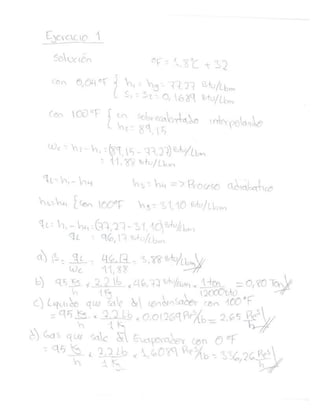 Ejercicio 1
Solución °F = 1.8°C + 32
con 0.04°F { h1 = hg = 77.27 Btu/Lbm
S1 = S2 = 0.1689 Btu/Lbm
con 100°F { en sobrecalentado interpolando
h2 = 89,15
Wc = h2 - h1 = (89,15 - 77.27) Btu/Lbm
= 11.88 Btu/Lbm
qL = h1 - h4 h3 = h4 => Proceso adiabatico
h3 = h4 { con 100°F h3 = 31.10 Btu/Lbm
qL = h1 - h4 = (77,27 - 31,10) Btu/Lbm
qL = 46,17 Btu/Lbm
a) β = qL/Wc = 46.17/11,88 = 3.88 Btu/Lbm
b) 95 Kg/h x 2.2 Lb/1 Kg x 46.17 Btu/Lbm x 1 ton/12000 Btu = 0,80 Ton
c) Liquido que sale del condensador con 100°F
= 95 Kg/h x 2.2 Lb/1 Kg x 0.01269 Pie³/Lb = 2.65 Pie³/h
d) Gas que sale del Evaporador con 0°F
= 95 Kg/h x 2.2 Lb/1 Kg x 1.6089 Pie³/Lb = 336,26 Pie³/h